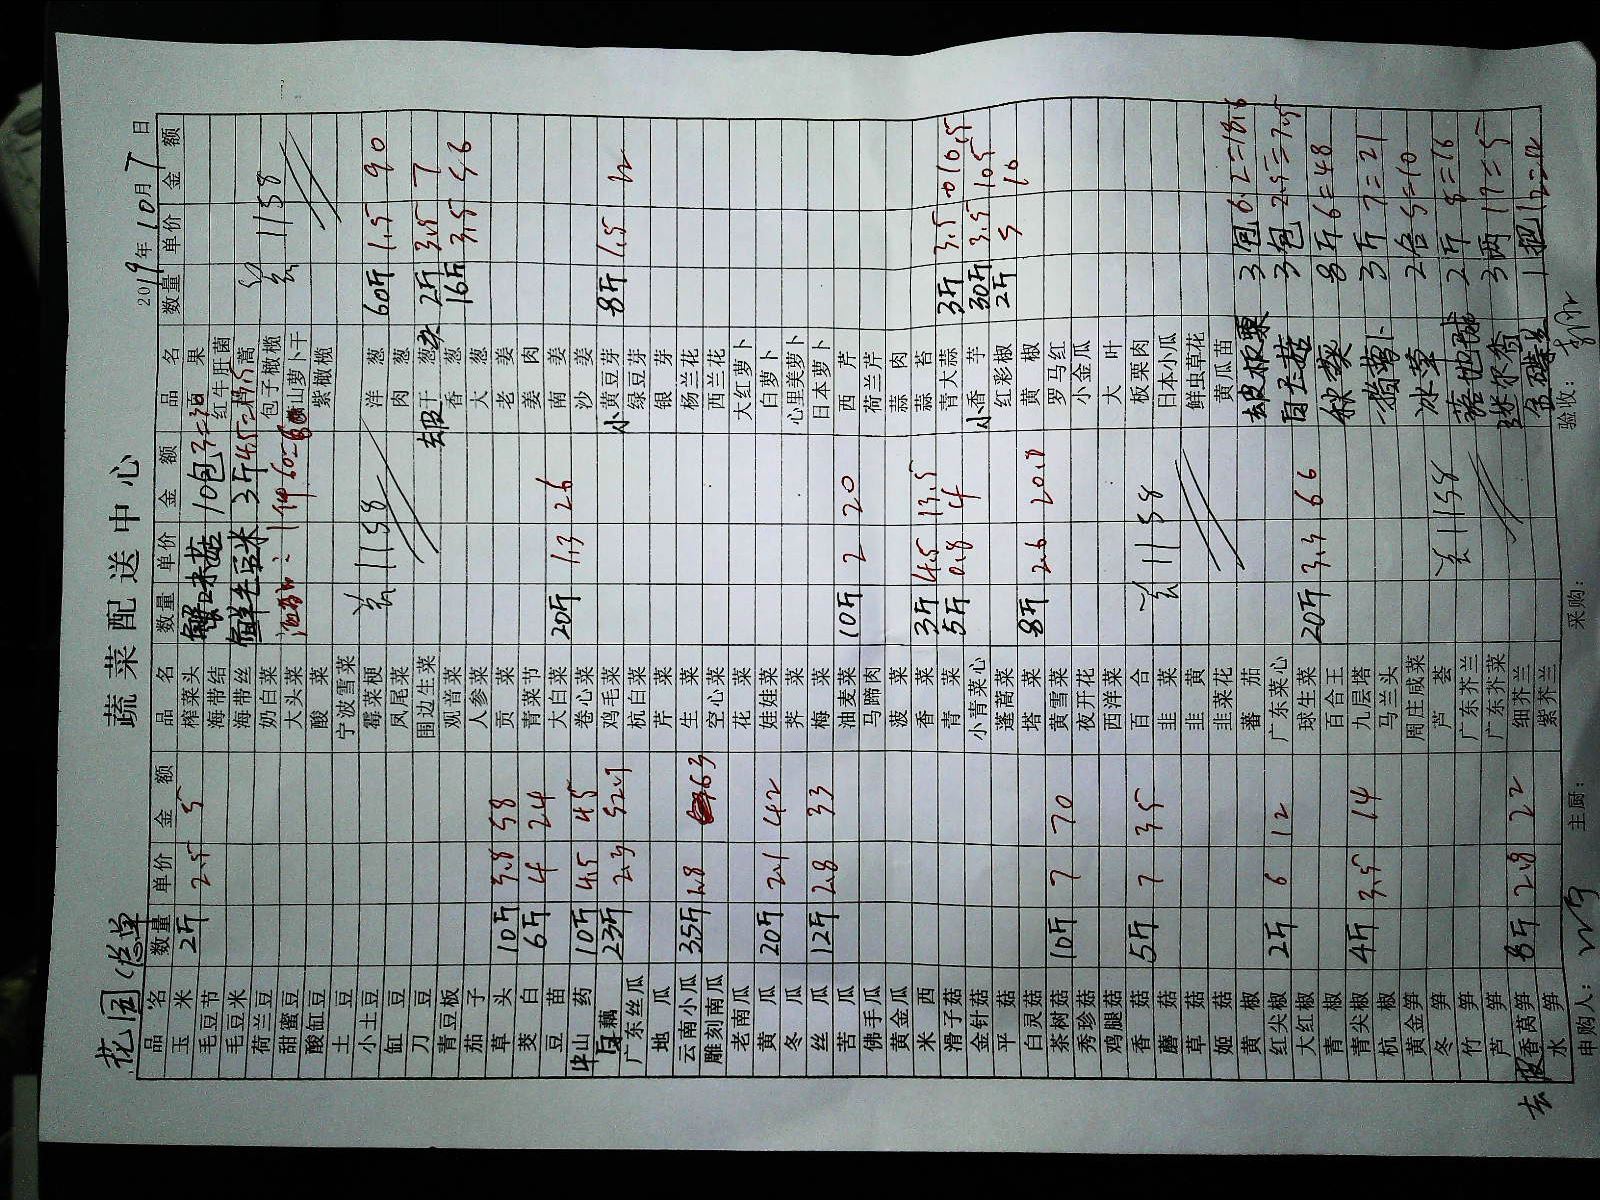 蔬菜配送中心
花园(总单 2019年10月7日
品名 数量 单价 金额 品名 数量 单价 金额 品名 数量 单价 金额
玉米 2斤 2.5 5 榨菜头 蟹味菇 10包3=30
毛豆节 海带结 红牛肝菌
毛豆米 海带丝 鲜毛豆米 3斤4.5=13.5
荷兰豆 奶白菜 包子橄榄 1158
甜蜜豆 大头菜 萧山萝卜干
酸豇豆 酸菜 紫橄榄
土豆 宁波雪菜
小土豆 霉菜梗 1158 洋葱 60斤 1.5 90
豇豆 凤尾菜 肉葱
刀豆 围边生菜 去皮干葱头 2斤 3.5 7
青豆板 观音菜 香葱 16斤 3.5 56
茄子 人参菜 大葱
草头 10斤 5.8 58 贡菜 老姜
茭白 6斤 4 24 青菜节 姜肉
豆苗 大白菜 20斤 1.3 26 南姜
山药 10斤 4.5 45 卷心菜 沙姜
藕 23斤 2.3 52.9 鸡毛菜 小黄豆芽 8斤 1.5 12
广东丝瓜 杭白菜 绿豆芽
地瓜 芹菜 银芽
云南小瓜 35斤 1.8 63 生菜 杨兰花
雕刻南瓜 空心菜 西兰花
老南瓜 花菜 大红萝卜
黄瓜 20斤 2.1 42 娃娃菜 白萝卜
冬瓜 荠菜 心里美萝卜
丝瓜 12斤 2.8 33 梅菜 日本萝卜
苦瓜 油麦菜 10斤 2 20 西芹
佛手瓜 马蹄肉 荷兰芹
黄金瓜 菠菜 蒜肉
米西 香菜 3斤 4.5 13.5 蒜苔
滑子菇 青菜 5斤 0.8 4 青大蒜 3斤 3.5 10.5
金针菇 小青菜心 小香芋 30斤 3.5 105
平菇 蓬蒿菜 红彩椒 2斤 5 10
白灵菇 塔菜 8斤 2.6 20.8 黄椒
茶树菇 10斤 7 70 黄雪菜 罗马红
秀珍菇 夜开花 小金瓜
鸡腿菇 西洋菜 大叶
香菇 5斤 7 35 百合 1158 板栗肉
蘑菇 韭菜 日本小瓜
草菇 韭黄 鲜虫草花
姬菇 韭菜花 黄瓜苗
黄椒 蕃茄 去皮板栗 3包 6.2=18.6
红尖椒 2斤 6 12 广东菜心 白玉菇 3包 2.5=7.5
大红椒 球生菜 20斤 3.3 66
青椒 百合王 秋葵 8斤 6=48
青尖椒 4斤 3.5 14 九层塔
杭椒 马兰头 指萝卜 3斤 7=21
黄金笋 周庄咸菜 冰草 2合 5=10
冬笋 芦荟 1158 2斤 8=16
竹笋 广东芥兰
芦笋 广东芥菜 3两 17=5
去皮香莴笋 8斤 2.8 22 细芥兰
水笋 紫芥兰 1把 12=12
申购人: 主厨: 采购: 验收: